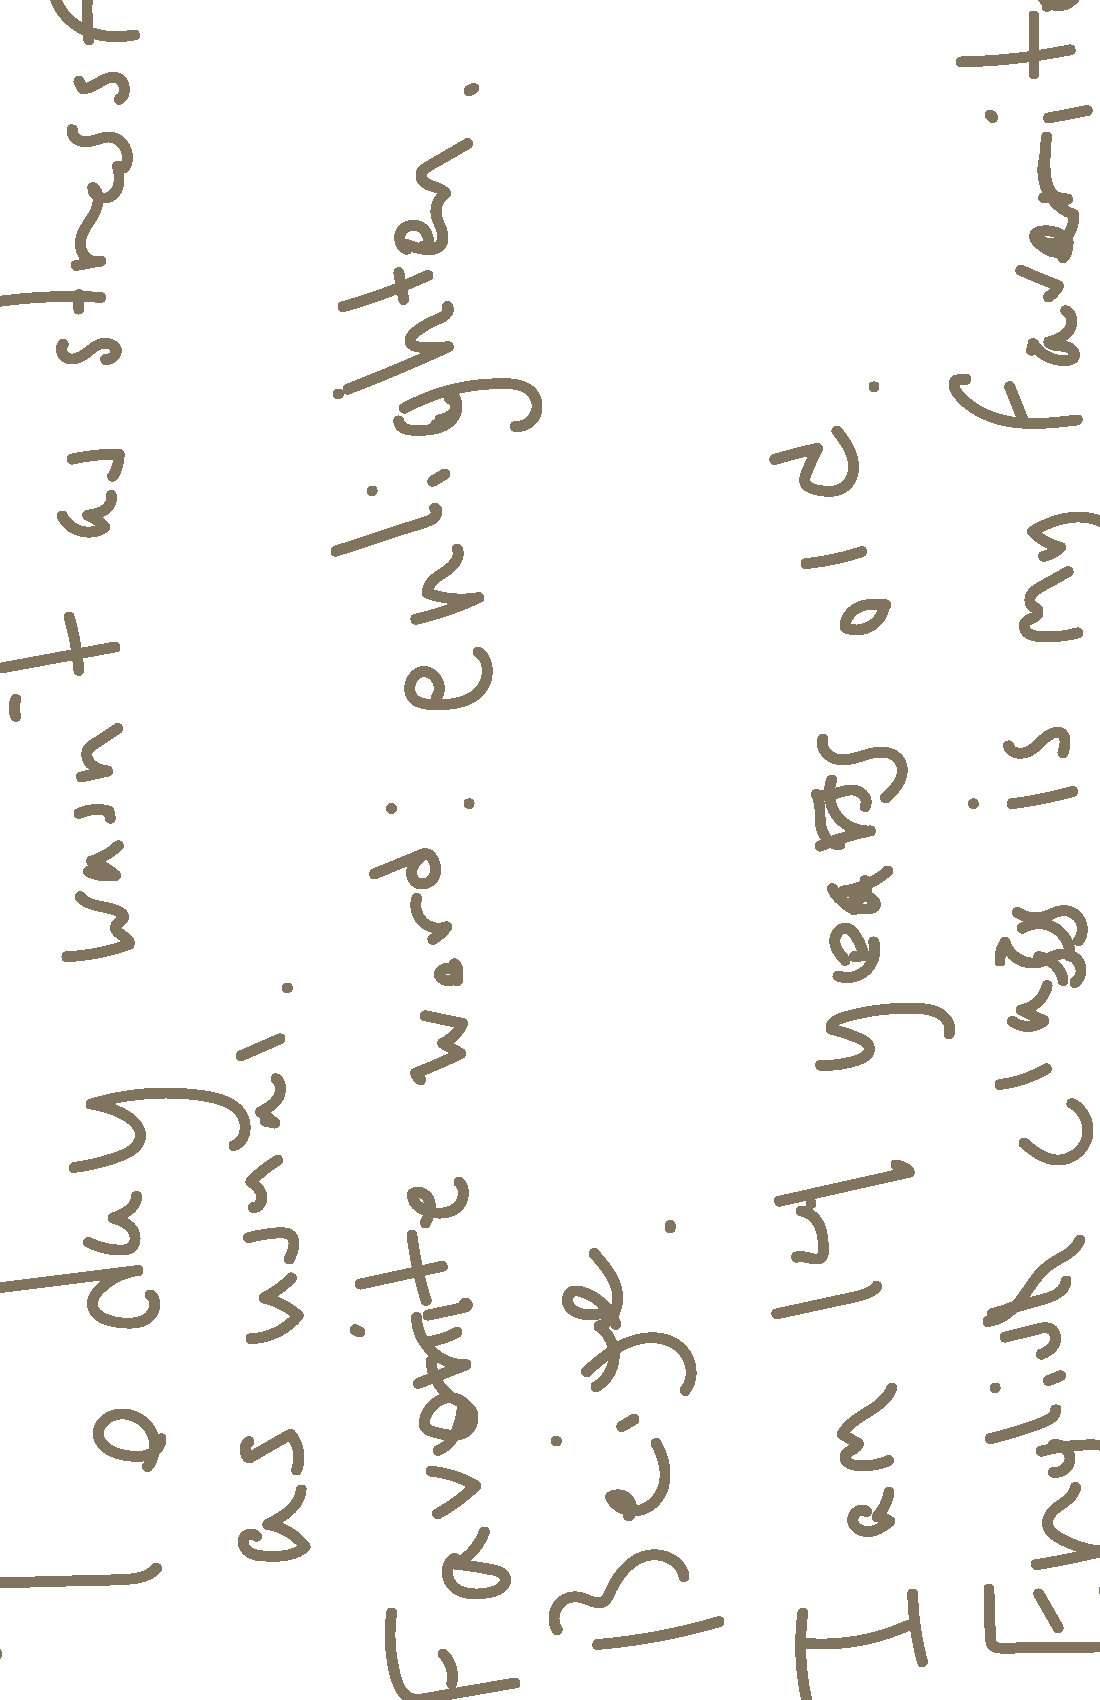 Today wasn't as stressf
as usual.
Favorite word: enlighten.
Beige.
I am 14 years old.
English class is my favorit